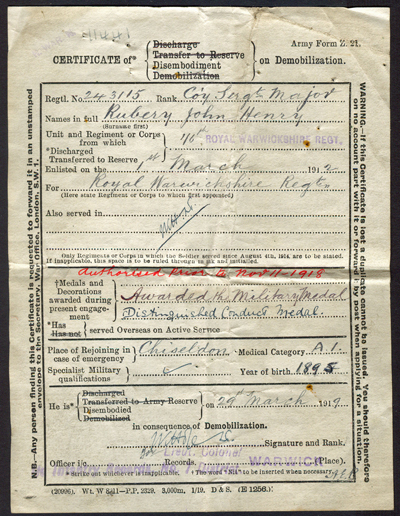 Army Form Z. 21.
CERTIFICATE of*
Discharge
Transfer to Reserve
Disembodiment
Demobilization
on Demobilization.
Regtl. No. 243115 Rank Coy Sergt Major
Names in full Rubery John Henry
(Surname first)
Unit and Regiment or Corps
from which
ROYAL WARWICKSHIRE REGT.
*Discharged
Transferred to Reserve
Enlisted on the 1st March 1912
For Royal Warwickshire Regt
(Here state Regiment or Corps to which first appointed)
Also served in
Only Regiments or Corps in which the Soldier served since August 4th, 1914, are to be stated.
If inapplicable, this space is to be ruled through in ink and initialled.
authorised prior to Nov 11-1918
†Medals and
Decorations
awarded during
present engage-
ment
Awarded the Military Medal
Distinguished Conduct Medal.
*Has
Has not
served Overseas on Active Service
Place of Rejoining in
case of emergency
Chiseldon
Medical Category A.1.
Specialist Military
qualifications
Year of birth 1895
He is*
Discharged
Transferred to Army Reserve
Disembodied
Demobilized
on 29th March 1919
in consequence of Demobilization.
Lieut. Colonel
Signature and Rank.
Officer i/c Records. WARWICK (Place).
*Strike out whichever is inapplicable. The word "NIL" to be inserted when necessary.
(20996). Wt. W 8411—P.P. 2329. 3,000m. 1/19. D & S. (E 1256.)
N.B.—Any person finding this Certificate is requested to forward it in an unstamped
envelope to the Secretary, War Office, London, S.W. 1.
WARNING.—If this Certificate is lost a duplicate cannot be issued. You should therefore
on no account part with it or forward it by post when applying for a situation.